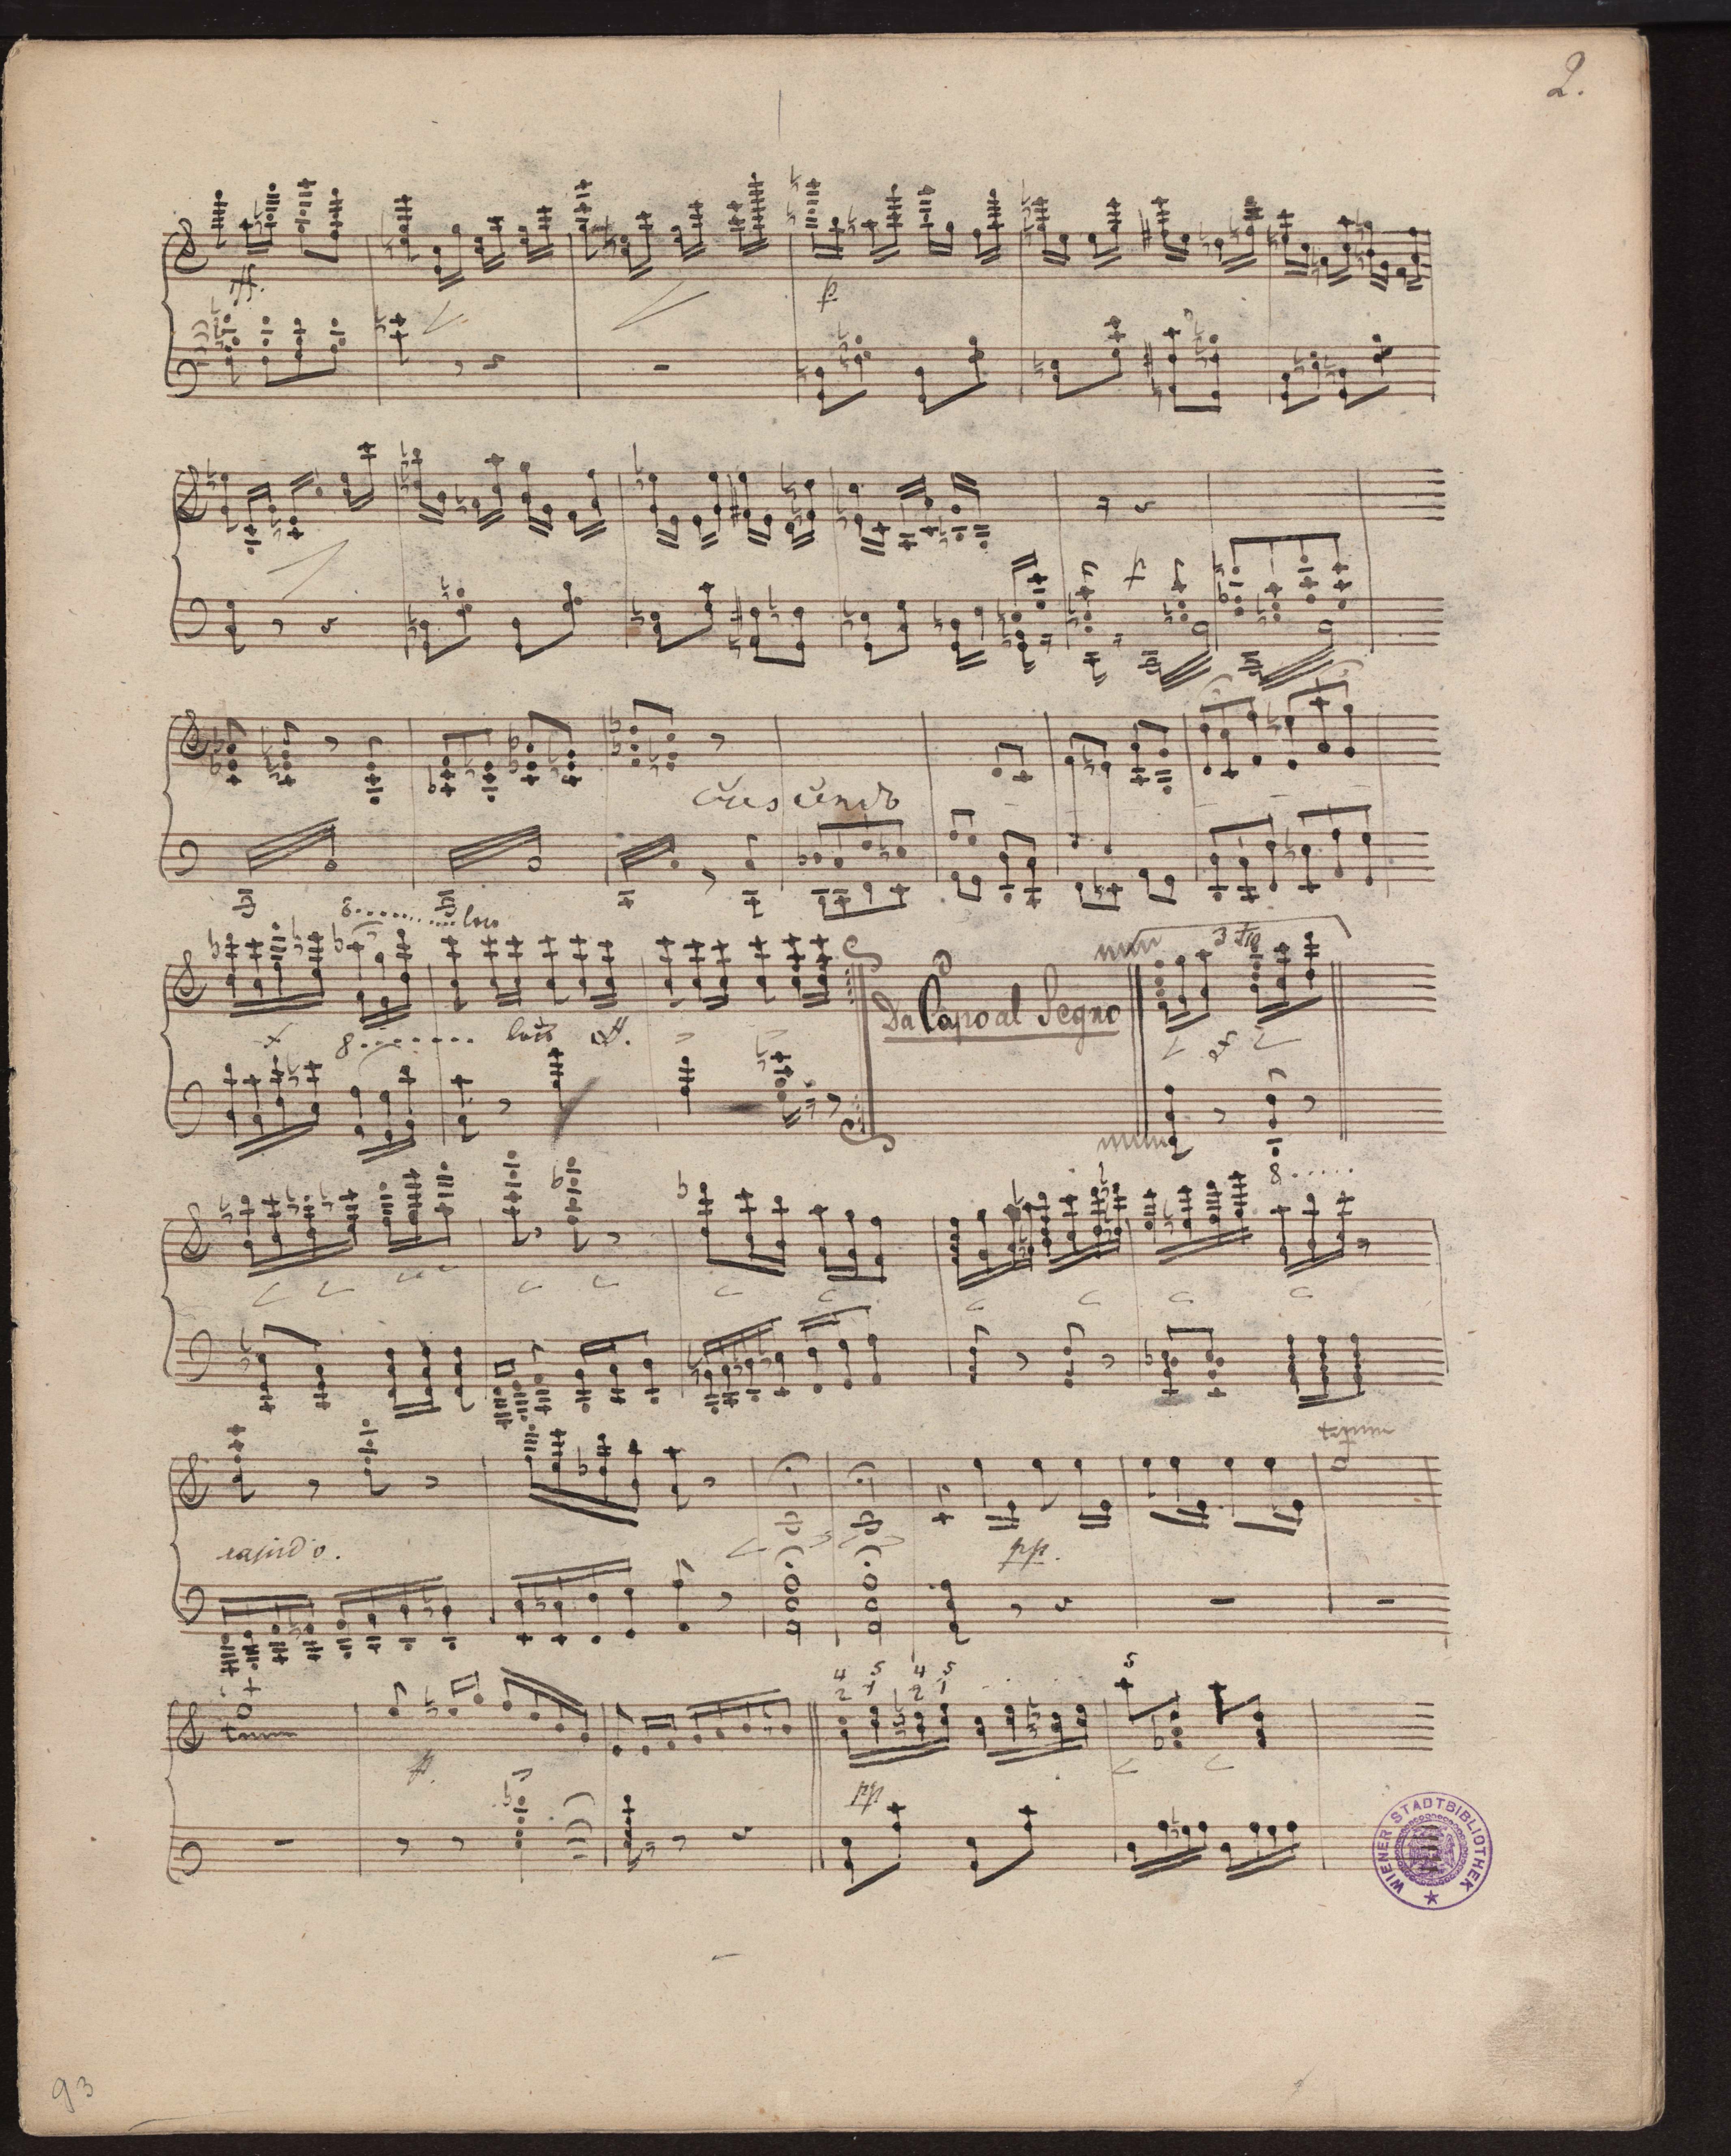 2.
ff.
p
f
crescendo
8........... loco
3 tio
f 8........ loco ff.
Da Capo al Segno
8......
rapido.
pp.
4 5 4 5
2 1 2 1
5
p.
pp
WIENER STADTBIBLIOTHEK
93